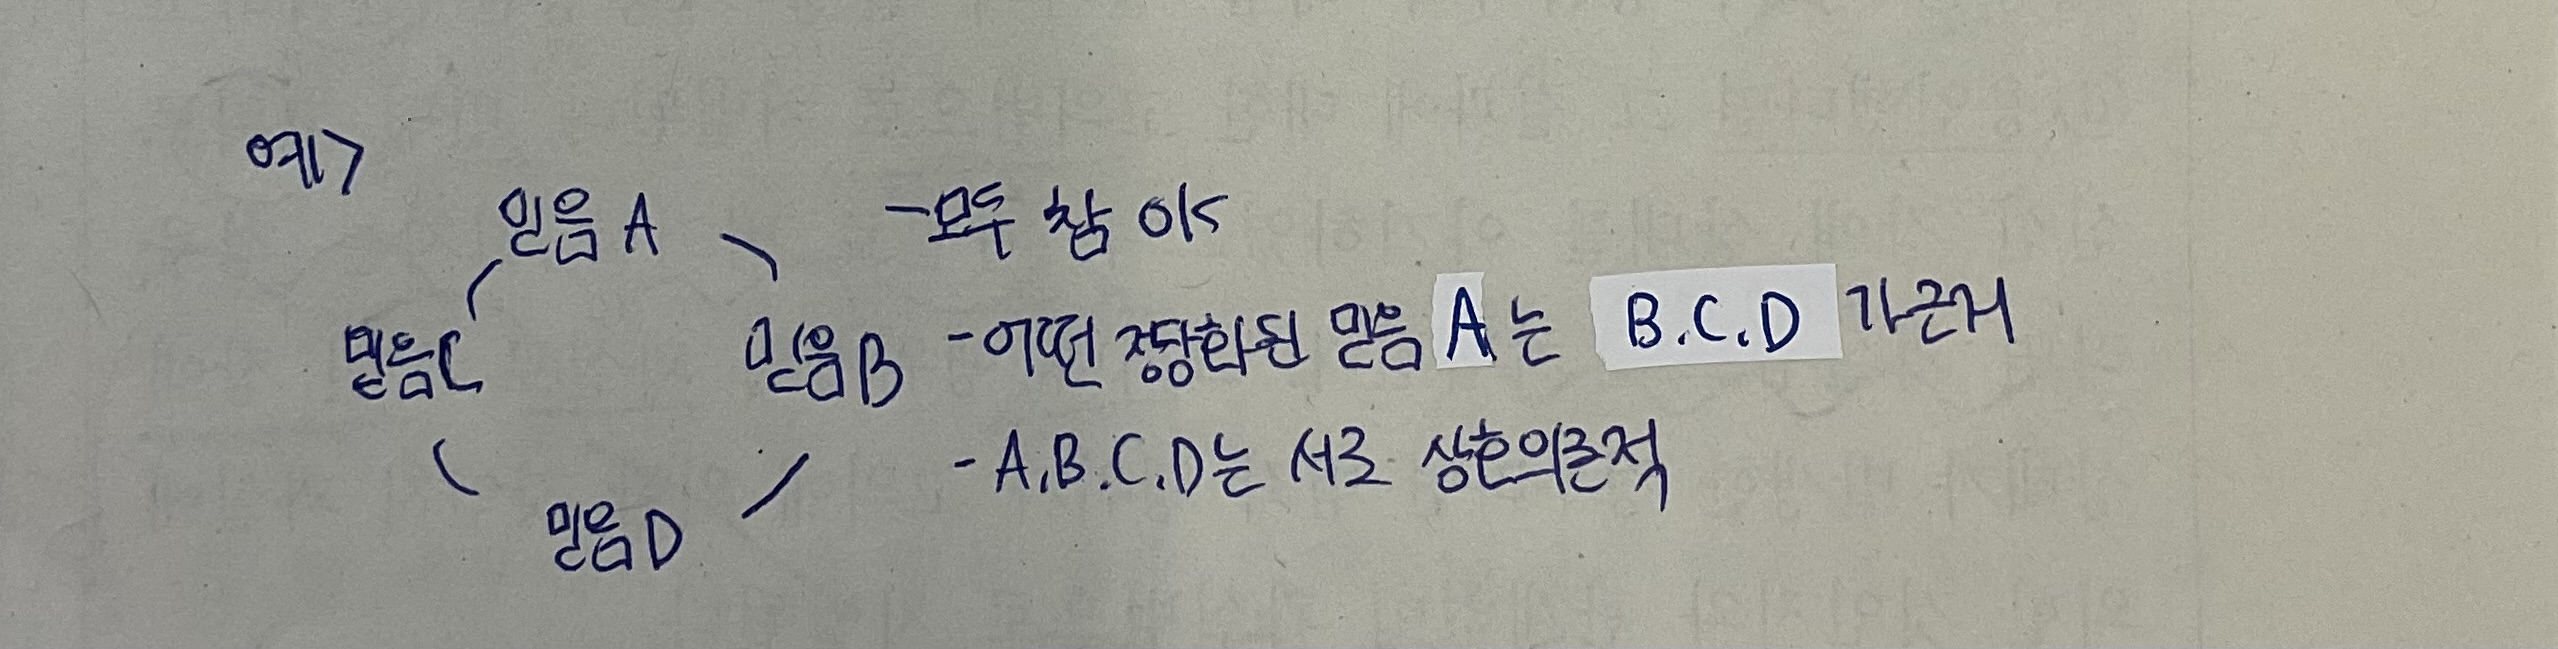 예>
믿음 A
믿음 C
믿음 B
믿음 D
- 모두 참 OK
- 어떤 정당화된 믿음 A는 B.C.D 가 근거
- A.B.C.D는 서로 상호의존적